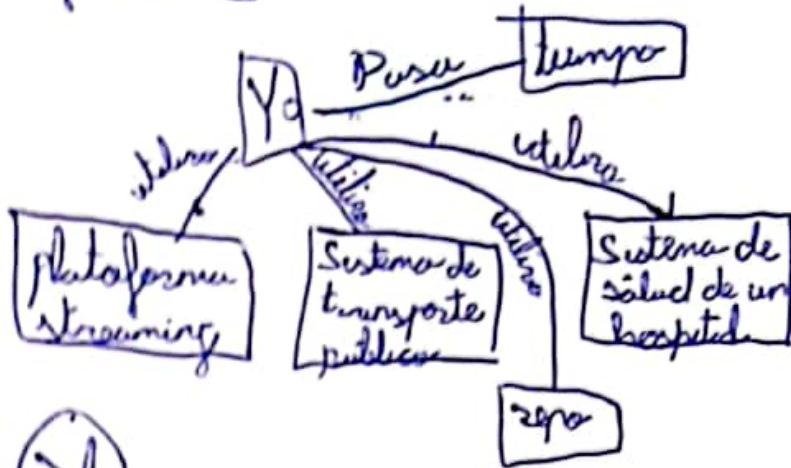 tiempo
Pasa
Yo
utiliza
utiliza
utiliza
utiliza
plataforma
streaming
Sistema de
transporte
publico
Sistema de
salud de un
hospital
repo